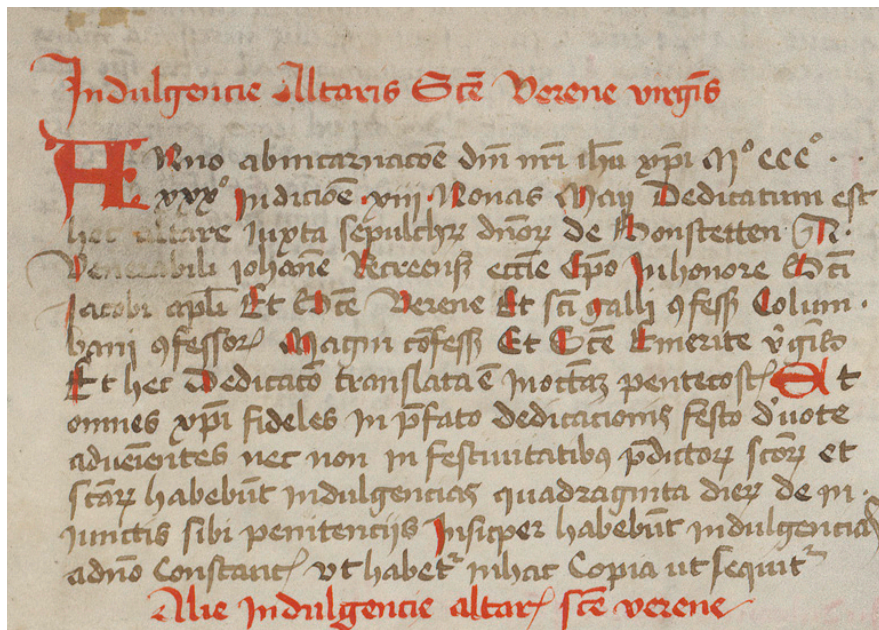 Indulgencie Altaris Scē Verene virgīs
ANno abincarnacōe dm̄ nrī ihū xp̄i Mº CCCº · ·
xxxº Indicōe · xiii · Nonas Maij Dedicatum est
hec altare Iuxta sepulchrꝝ dn̄oꝝ de Bonstetten A
Venerabili Iohāne Recreens̄ ecc̄ie Ep̄o Inhonore Scī
Iacobi apl̄i Et Scē Verene Et scī Galli ꝯfess̄ Colum ·
bani ꝯfessoꝝ Magni cōfess̄ Et Scē Emerite
Et hec Dedicacō translata ē In octaꝫ pentecost̄ Et
omnes xp̄i fideles In p̄fato dedicacionis festo d'uote
adueīentes nec non in festiuitatibꝯ p̄dictoꝝ scōꝝ et
scāꝝ habebūt Indulgencias quadraginta dieꝝ de in ·
iunctis sibi penitencijs Insuper habebūt Indulgencias
adn̄o Constanc̄ vt habet᷑ inhac Copia ut sequit᷑
Alie Indulgencie altar̄ scē verene